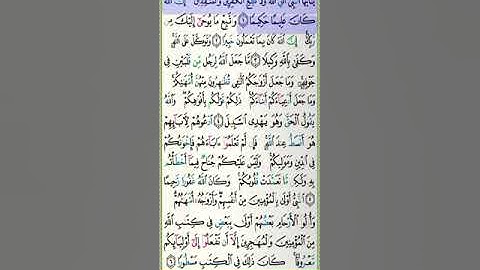 يَٰٓأَيُّهَا ٱلنَّبِيُّ ٱتَّقِ ٱللَّهَ وَلَا تُطِعِ ٱلْكَٰفِرِينَ وَٱلْمُنَٰفِقِينَ إِنَّ ٱللَّهَ
كَانَ عَلِيمًا حَكِيمًا ١ وَٱتَّبِعْ مَا يُوحَىٰٓ إِلَيْكَ مِن
رَّبِّكَ إِنَّ ٱللَّهَ كَانَ بِمَا تَعْمَلُونَ خَبِيرًا ٢ وَتَوَكَّلْ عَلَى ٱللَّهِ
وَكَفَىٰ بِٱللَّهِ وَكِيلًا ٣ مَّا جَعَلَ ٱللَّهُ لِرَجُلٍ مِّن قَلْبَيْنِ فِي
جَوْفِهِۦ وَمَا جَعَلَ أَزْوَٰجَكُمُ ٱلَّٰٓـِٔي تُظَٰهِرُونَ مِنْهُنَّ أُمَّهَٰتِكُمْ
وَمَا جَعَلَ أَدْعِيَآءَكُمْ أَبْنَآءَكُمْ ذَٰلِكُمْ قَوْلُكُم بِأَفْوَٰهِكُمْ وَٱللَّهُ
يَقُولُ ٱلْحَقَّ وَهُوَ يَهْدِي ٱلسَّبِيلَ ٤ ٱدْعُوهُمْ لِءَابَآئِهِمْ
هُوَ أَقْسَطُ عِندَ ٱللَّهِ فَإِن لَّمْ تَعْلَمُوٓا۟ ءَابَآءَهُمْ فَإِخْوَٰنُكُمْ
فِي ٱلدِّينِ وَمَوَٰلِيكُمْ وَلَيْسَ عَلَيْكُمْ جُنَاحٌ فِيمَآ أَخْطَأْتُم
بِهِۦ وَلَٰكِن مَّا تَعَمَّدَتْ قُلُوبُكُمْ وَكَانَ ٱللَّهُ غَفُورًا رَّحِيمًا
٥ ٱلنَّبِيُّ أَوْلَىٰ بِٱلْمُؤْمِنِينَ مِنْ أَنفُسِهِمْ وَأَزْوَٰجُهُۥٓ أُمَّهَٰتُهُمْ
وَأُو۟لُوا۟ ٱلْأَرْحَامِ بَعْضُهُمْ أَوْلَىٰ بِبَعْضٍ فِي كِتَٰبِ ٱللَّهِ
مِنَ ٱلْمُؤْمِنِينَ وَٱلْمُهَٰجِرِينَ إِلَّآ أَن تَفْعَلُوٓا۟ إِلَىٰٓ أَوْلِيَآئِكُم
مَّعْرُوفًا كَانَ ذَٰلِكَ فِي ٱلْكِتَٰبِ مَسْطُورًا ٦